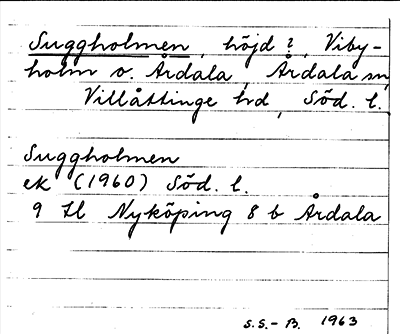 Suggholmen, höjd ?, Viby-
holm o. Årdala, Årdala sn,
Villåttinge hd, Söd. l.
Suggholmen
ek (1960) Söd. l.
9 Hl Nyköping 8 b Årdala
S.S.-B. 1963